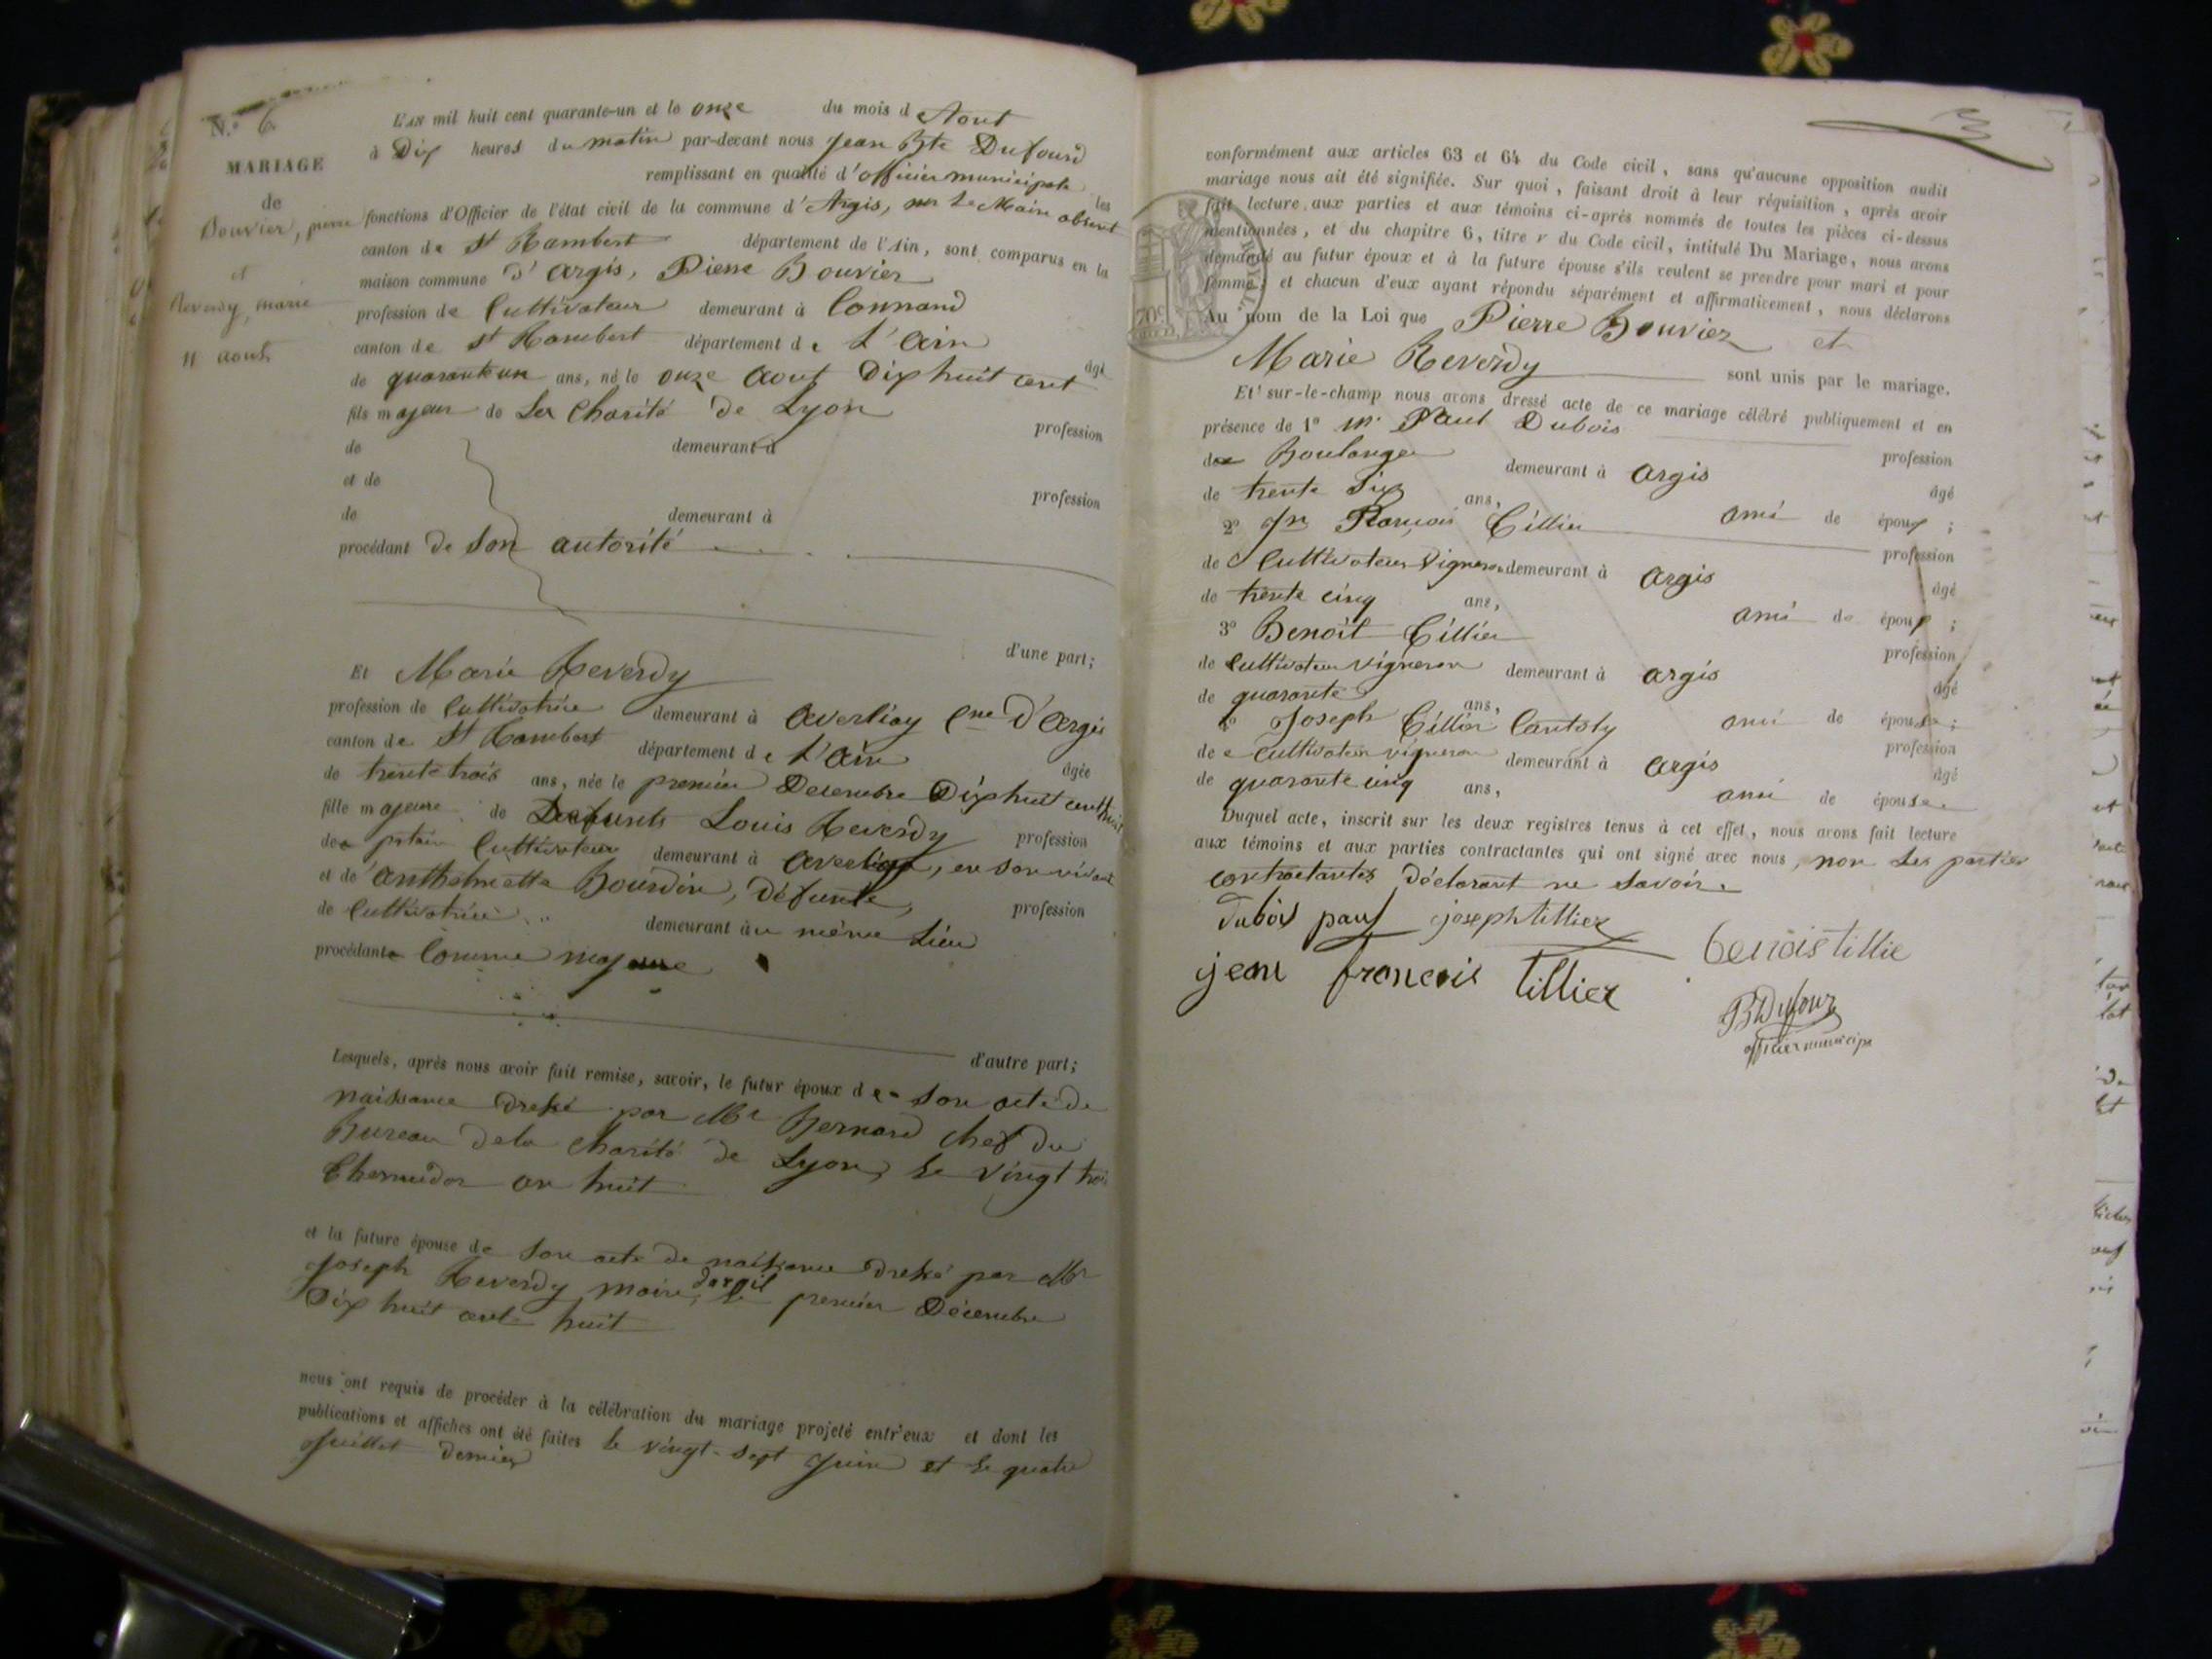 N.° 6
MARIAGE
de
Bouvier, pierre
et
Reverdy, marie
11 aout
L'AN mil huit cent quarante-un et le onze du mois d Aout
à Dix heures du matin par-devant nous Jean Bte Dufour
remplissant en qualité d'officier municipale les
fonctions d'Officier de l'état civil de la commune d'Argis, Le Maire absent
canton de St Rambert département de l'Ain, sont comparus en la
maison commune d'argis, Pierre Bouvier
profession de Cultivateur demeurant à Connand
canton de st Rambert département de L'Ain
âgé
de quarante un ans, né le onze Aout Dix huit cent
fils majeur de La Charité de Lyon
profession
de demeurant à
et de
profession
de demeurant à
procédant de Son autorité
d'une part;
Et Marie Reverdy
profession de Cultivatrice demeurant à Averliay Cne D'Argis
canton de St Rambert département de L'Ain
âgée
de trente trois ans, née le premier Decembre Dix huit cent huit
fille majeure de Defunts Louis Reverdy profession
de Cultivateur demeurant à Averliay, en son vivant
et de anthelmette Bourdin, Défunte, profession
de Cultivatrice demeurant au même Lieu
procédante Comme majeure
d'autre part;
Lesquels, après nous avoir fait remise, savoir, le futur époux de son acte de
naissance dressé par Mr Bernard chef du
Bureau de la charité de Lyon, le vingt trois
Thermidor an huit
et la future épouse de Son acte de naissance dressé par Mr
Joseph Reverdy maire, d'argis le premier Décembre
Dix huit cent huit
nous ont requis de procéder à la célébration du mariage projeté entr'eux et dont les
publications et affiches ont été faites le vingt-sept Juin et le quatre
Juillet dernier
conformément aux articles 63 et 64 du Code civil, sans qu'aucune opposition audit
mariage nous ait été signifiée. Sur quoi, faisant droit à leur réquisition, après avoir
fait lecture aux parties et aux témoins ci-après nommés de toutes les pièces ci-dessus
mentionnées, et du chapitre 6, titre v du Code civil, intitulé Du Mariage, nous avons
demandé au futur époux et à la future épouse s'ils veulent se prendre pour mari et pour
femme; et chacun d'eux ayant répondu séparément et affirmativement, nous déclarons
Au nom de la Loi que Pierre Bouvier et
Marie Reverdy sont unis par le mariage.
Et sur-le-champ nous avons dressé acte de ce mariage célébré publiquement et en
présence de 1° mr Paul Dubois
profession
de Boulanger demeurant à Argis
âgé
de trente Six ans, ami de époux;
2° Jn François Tillier
profession
de Cultivateur Vigneron demeurant à Argis
âgé
de trente cinq ans, ami de époux;
3° Benoit Tillier
profession
de Cultivateur vigneron demeurant à argis
âgé
de quarante ans, ami de épouse;
4° Joseph Tillier
profession
de cultivateur vigneron demeurant à argis
âgé
de quarante cinq ans, ami de épouse
Duquel acte, inscrit sur les deux registres tenus à cet effet, nous avons fait lecture
aux témoins et aux parties contractantes qui ont signé avec nous, non Les parties
contractantes Déclarant ne Savoir.
Dubois paul joseph tillier
benois tillie
jean francois tillier
Bt Dufour
officier municipe
ROYAL
70c